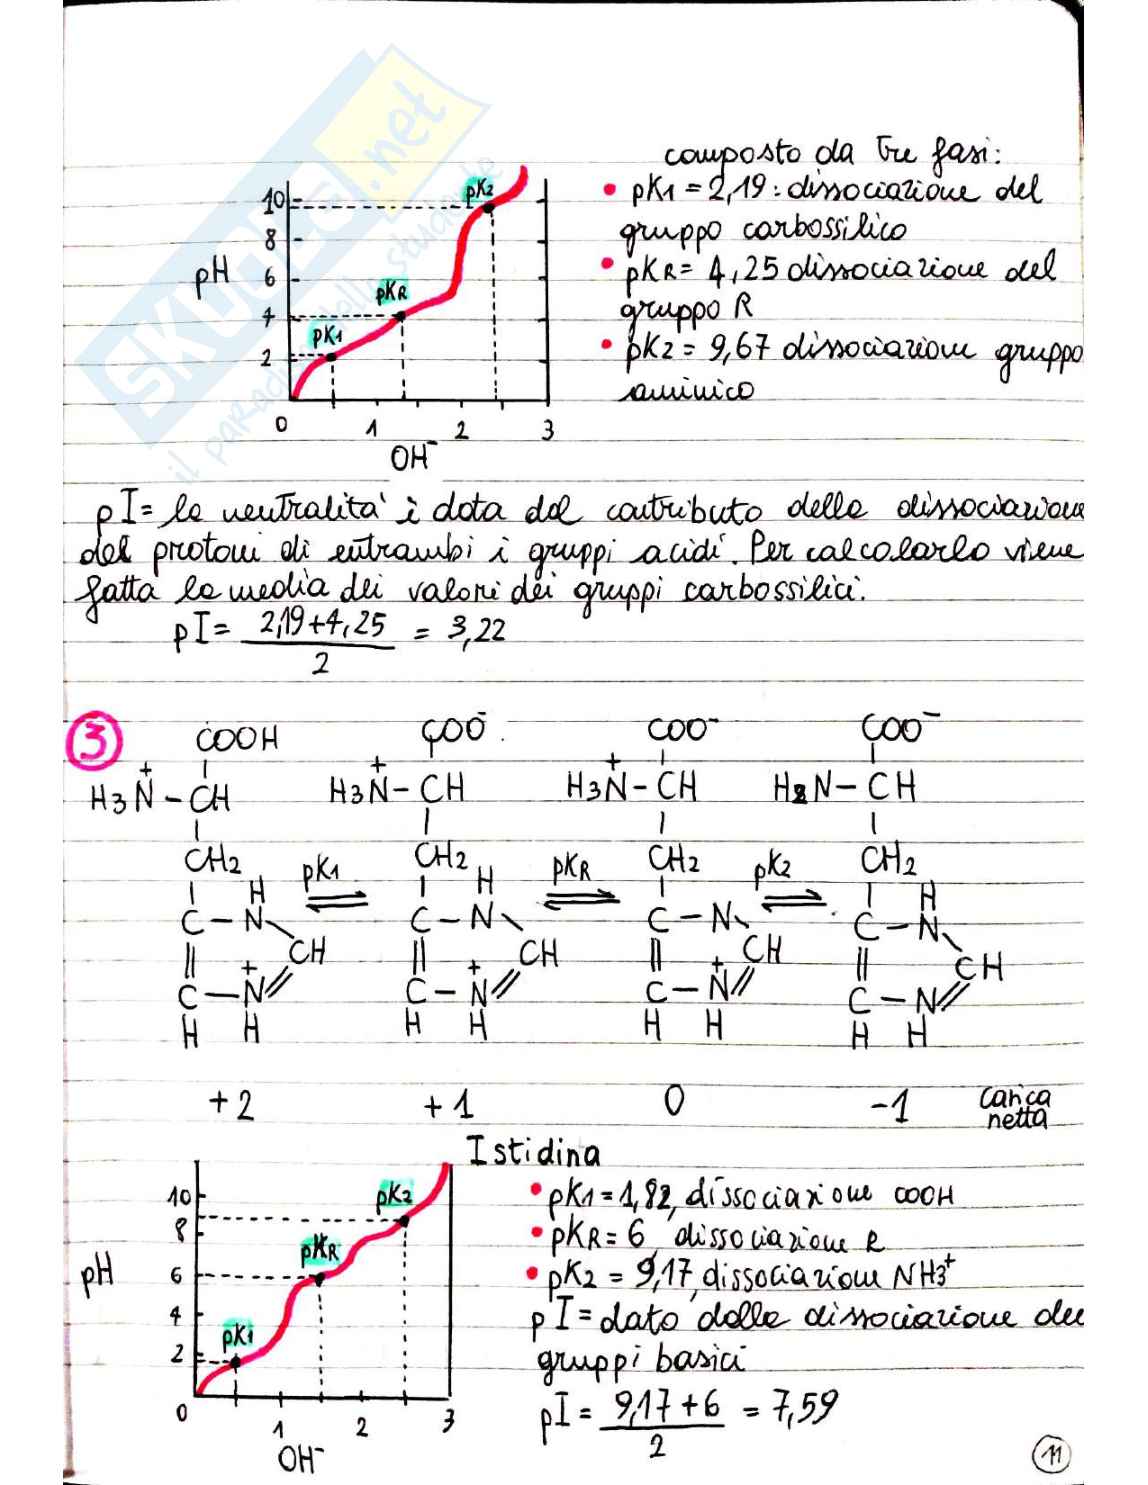 composto da tre fasi:
• pK1 = 2,19 : dissociazione del
gruppo carbossilico
• pKR = 4,25 dissociazione del
gruppo R
• pK2 = 9,67 dissociazione gruppo
aminico
pH
10
8
6
4
2
pK1
pKR
pK2
0 1 2 3
OH⁻
SKUOLA.net
il paradiso dello studente
pI = la neutralità è data dal contributo della dissociazione
del protoni di entrambi i gruppi acidi. Per calcolarlo viene
fatta la media dei valori dei gruppi carbossilici.
pI = 2,19+4,25 / 2 = 3,22
3
COOH COO⁻ COO⁻ COO⁻
H3N⁺ – CH H3N⁺ – CH H3N⁺ – CH H2N – CH
CH2 CH2 CH2 CH2
pK1 pKR pK2
H H H
C – N C – N C – N C – N
CH CH CH CH
C – N⁺ C – N⁺ C – N⁺ C – N
H H H H H H H H
+2 +1 0 -1 carica
netta
Istidina
• pK1 = 1,82, dissociazione COOH
• pKR = 6, dissociazione R
• pK2 = 9,17, dissociazione NH3⁺
pI = dato dalla dissociazione dei
gruppi basici
pI = 9,17 + 6 / 2 = 7,59
pH
10
8
6
4
2
pK1
pKR
pK2
0 1 2 3
OH⁻
11